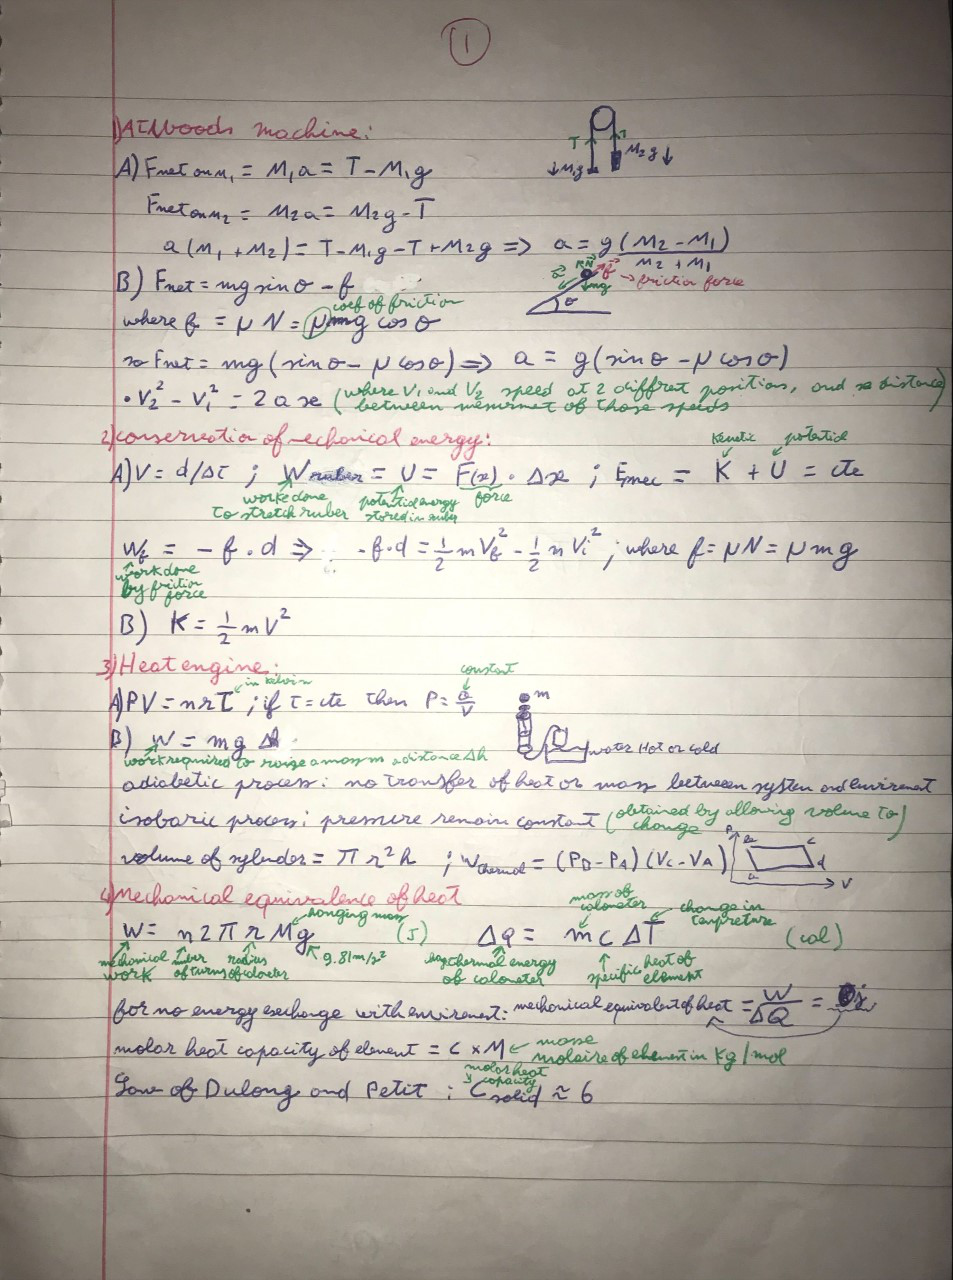 1
1) Atwoods machine:
T T M₁g M₂g
A) Fnet on M₁ = M₁a = T - M₁g
Fnet on M₂ = M₂a = M₂g - T
a (M₁ + M₂) = T - M₁g - T + M₂g => a = g (M₂ - M₁) / M₂ + M₁
B) Fnet = mg sin θ - f
N f → friction force mg θ
coef of friction
where f = μ N = μ mg cos θ
so Fnet = mg (sin θ - μ cos θ) => a = g (sin θ - μ cos θ)
• V₂² - V₁² = 2 a x (where V₁ and V₂ speed at 2 diffrent positions, and x distance)
between of those speeds
2) conservation of mechanical energy:
Kenetic potential
A) V = d/Δt ; Wruber = U = F(x) · Δx ; Emec = K + U = cte
worke done to stretch ruber
potential energy stored in ruber
force
Wf = - f · d => - f · d = ½ m Vf² - ½ m Vi² ; where f = μ N = μ m g
work done by friction force
B) K = ½ m V²
3) Heat engine:
in kelvin constant
A) PV = n r T ; if T = cte then P = a/V
m
B) W = mg Δh
water Hot or cold
work required to raise a mass m a distance Δh
adiabetic process: no transfer of heat or mass between system and envirement
isobaric process: pressure remain constant (obtained by allowing volume to change)
volume of sylender = π r² h ; Wthermal = (PB - PA) (VC - VA)
P b c a d V
4) Mechanical equivalence of heat
hanging mass
mass of calometer
change in tempreture
W = n 2 π r M g (J) ΔQ = m c ΔT (cal)
mechanical work
of turns
radius of calometer
9.81 m/s²
thermal energy of calometer
specific heat of element
for no energy exchange with envirement: mechanical equivalent of heat = W/ΔQ =
molar heat capacity of element = C x M ← masse molaire of element in Kg/mol
molar heat capacity
Law of Dulong and Petit : Csolid ≈ 6